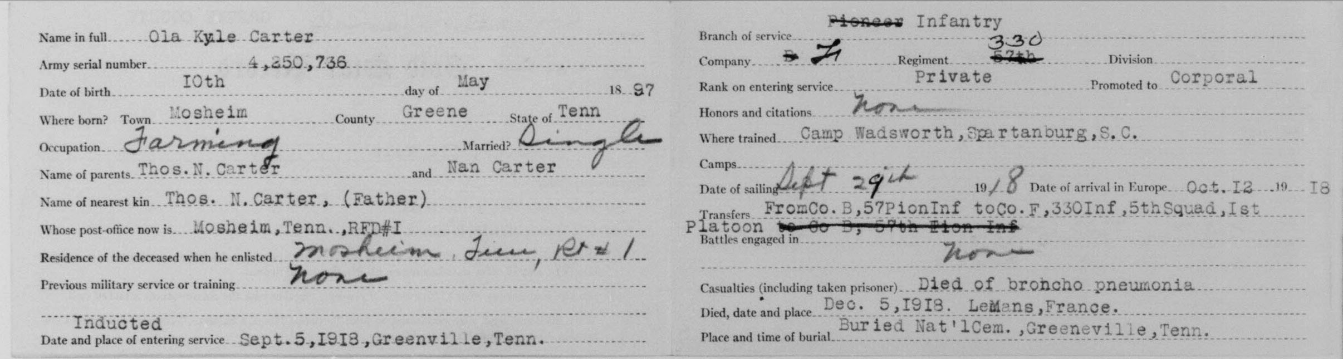 Name in full Ola Kyle Carter
Army serial number 4,850,736
Date of birth I0th day of May 18 97
Where born? Town Mosheim County Greene State of Tenn
Occupation Farming Married? Single
Name of parents Thos.N.Carter and Nan Carter
Name of nearest kin Thos. N.Carter, (Father)
Whose post-office now is Mosheim,Tenn.,RFD#I
Residence of the deceased when he enlisted Mosheim, Tenn, Rt # 1
Previous military service or training None
Inducted
Date and place of entering service Sept.5,I9I8,Greenville,Tenn.
Pioneer Infantry
Branch of service
330
Company B F Regiment 57th Division
Rank on entering service Private Promoted to Corporal
Honors and citations None
Where trained Camp Wadsworth,Spartanburg,S.C.
Camps
Date of sailing Sept 29th 19 18 Date of arrival in Europe Oct.I2 19 I8
Transfers FromCo.B,57PionInf toCo.F,330Inf,5thSquad,Ist
Platoon to Co B, 57th Pion Inf
Battles engaged in
None
Casualties (including taken prisoner) Died of broncho pneumonia
Died, date and place Dec. 5,I9I8. LeMans,France.
Place and time of burial Buried Nat'lCem.,Greeneville,Tenn.